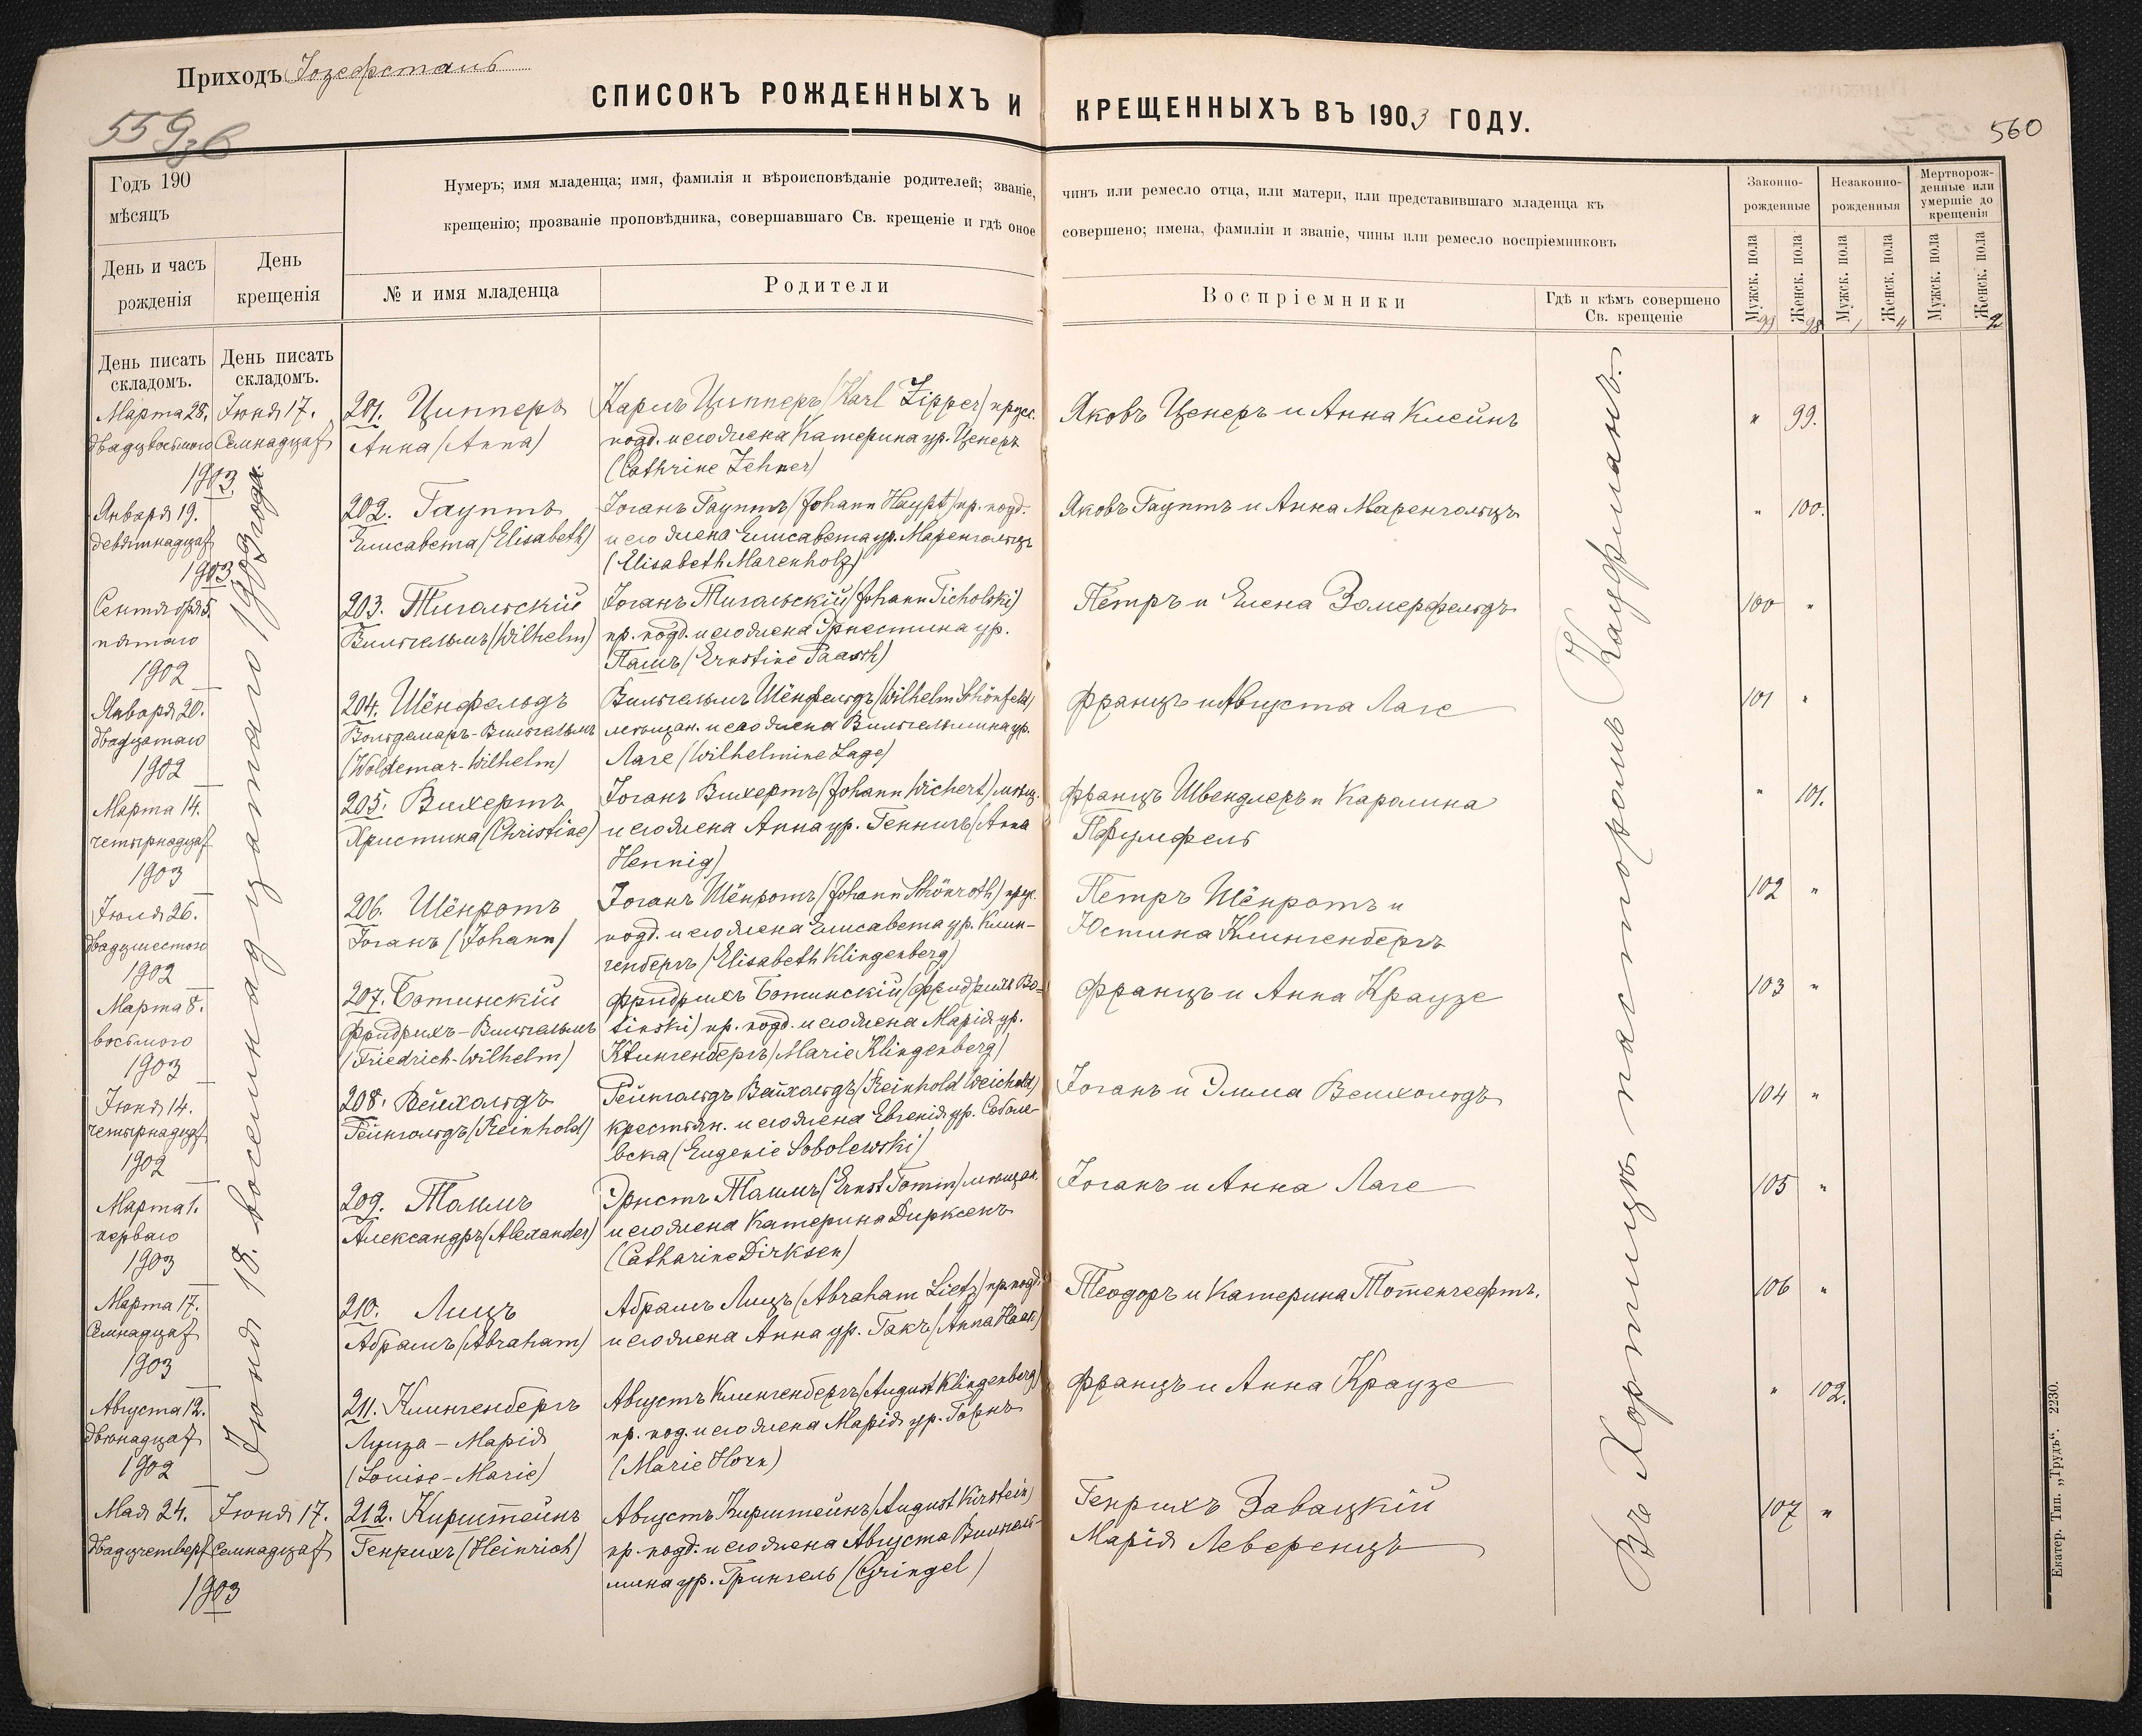 Приходъ Іозефсталь
СПИСОКЪ РОЖДЕННЫХЪ И КРЕЩЕННЫХЪ ВЪ 1903 ГОДУ.
560
Годъ 190
мѣсяцъ
Нумеръ; имя младенца; имя, фамилія и вѣроисповѣданіе родителей; званіе, чинъ или ремесло отца, или матери, или представившаго младенца къ
крещенію; прозваніе проповѣдника, совершавшаго Св. крещеніе и гдѣ оное совершено; имена, фамиліи и званіе, чины или ремесло воспріемниковъ
Законно-
рожденные
Незаконно-
рожденныя
Мертворож-
денные или
умершіе до
крещенія
День и часъ
рожденія
День
крещенія
№ и имя младенца
Родители
Воспріемники
Гдѣ и кѣмъ совершено
Св. крещеніе
Мужск. пола 99
Женск. пола 98
Мужск. пола 1
Женск. пола 4
Мужск. пола
Женск. пола 2
День писать
складомъ.
День писать
складомъ.
Марта 28.
двадцвосьмого
1903.
Іюня 17.
Семнадцаг
201.Ципперъ
Анна (Anna)
КарлъЦипперъ (Karl Zipper) прус.
подд. и его жена Катерина ур. Ценеръ
(Cathrine Zehner)
Яковъ Ценеръ и Анна Клейнъ
" 99.
Января 19.
девятнадцаг
1903.
202. Гауптъ
Елисавета (Elisabeth)
Іоганъ Гауптъ (Johann Haupt) пр. подд.
и его жена Елисавета ур. Маренгольцъ
(Elisabeth Marenholz)
Яковъ Гауптъ и Анна Маренгольцъ
" 100.
Сентября 5.
пятаго
1902
203. Тигольскій
Вильгельмъ (Wilhelm)
Іоганъ Тигольскій (Johann Ticholski)
пр. подд. и его жена Эрнестина ур.
Пашъ (Ernstine Paasch)
Петръ и Елена Зомерфельдъ
100 "
Января 20.
двадцатаго
1902
204. Шёнфельдъ
Вольдемаръ-Вильгельмъ
(Woldemar-Wilhelm)
Вильгельмъ Шёнфельдъ (Wilhelm Schönfeld)
мѣщан. и его жена Вильгельмина ур.
Лаге (Wilhelmine Lage)
Францъ и Августа Лаге
101 "
Марта 14.
четырнадцаг
1903
205. Вихертъ
Христина (Christine)
Іоганъ Вихертъ (Johann Wichert) мѣщ.
и его жена Анна ур. Геннигъ (Anna
Hennig)
Францъ Швендлеръ и Каролина
Пфумфель
" 101.
Іюля 26.
двадцшестого
1902
206. Шёнротъ
Іоганъ (Johann)
Іоганъ Шёнротъ (Johann Schönroth) прус.
подд. и его жена Елисавета ур. Клин-
генбергъ (Elisabeth Klingenberg)
Петръ Шёнротъ и
Юстина Клингенбергъ
102 "
Марта 8.
восьмого
1903
207. Ботинскій
Фридрихъ-Вильгельмъ
(Friedrich-Wilhelm)
Фридрихъ Ботинскій (Фридрихъ Bo-
tinski) пр. подд. и его жена Марія ур.
Клингенбергъ (Marie Klingenberg)
Францъ и Анна Краузе
103 "
Іюня 14.
четырнадцаг
1902
208. Вейхольдъ
Рейнгольдъ (Reinhold)
Рейнгольдъ Вейхольдъ (Reinhold Weichold)
крестьян. и его жена Евгенія ур. Соболе-
вска (Eugenie Sobolewski)
Іоганъ и Эмма Вейхольдъ
104 "
Марта 1.
перваго
1903
209. Томмъ
Александръ (Alexander)
Эрнстъ Томмъ (Ernst Tomm) мѣщан.
и его жена Катерина Дирксенъ
(Catharine Dirksen)
Іоганъ и Анна Лаге
105 "
Марта 17.
Семнадцаг
1903
210. Лицъ
Абрамъ (Abraham)
Абрамъ Лицъ (Abraham Lietz) пр. подд.
и его жена Анна ур. Гакъ (Anna Haak)
Теодоръ и Катерина Тотенгефтъ.
106 "
Августа 12.
двѣнадцаг
1902
211. Клингенбергъ
Луиза-Марія
(Louise-Marie)
Августъ Клингенбергъ (August Klingenberg)
пр. под. и его жена Марія ур. Горнъ
(Marie Horn)
Францъ и Анна Краузе
" 102.
Мая 24.
двадцчетверг
1903
Іюня 17.
семнадцаг
212. Кирштейнъ
Генрихъ (Heinrich)
Августъ Кирштейнъ (August Kirstein)
пр. подд. и его жена Августа Вильгель-
мина ур. Грингель (Gringel)
Генрихъ Завацкій
Марія Леверенцъ
107 "
Іюня 18. восемнадцатаго 1903 года.
Въ Хортицѣ пасторомъ Кауфманъ.
Екатер. Тип. „Трудъ“. 2230.